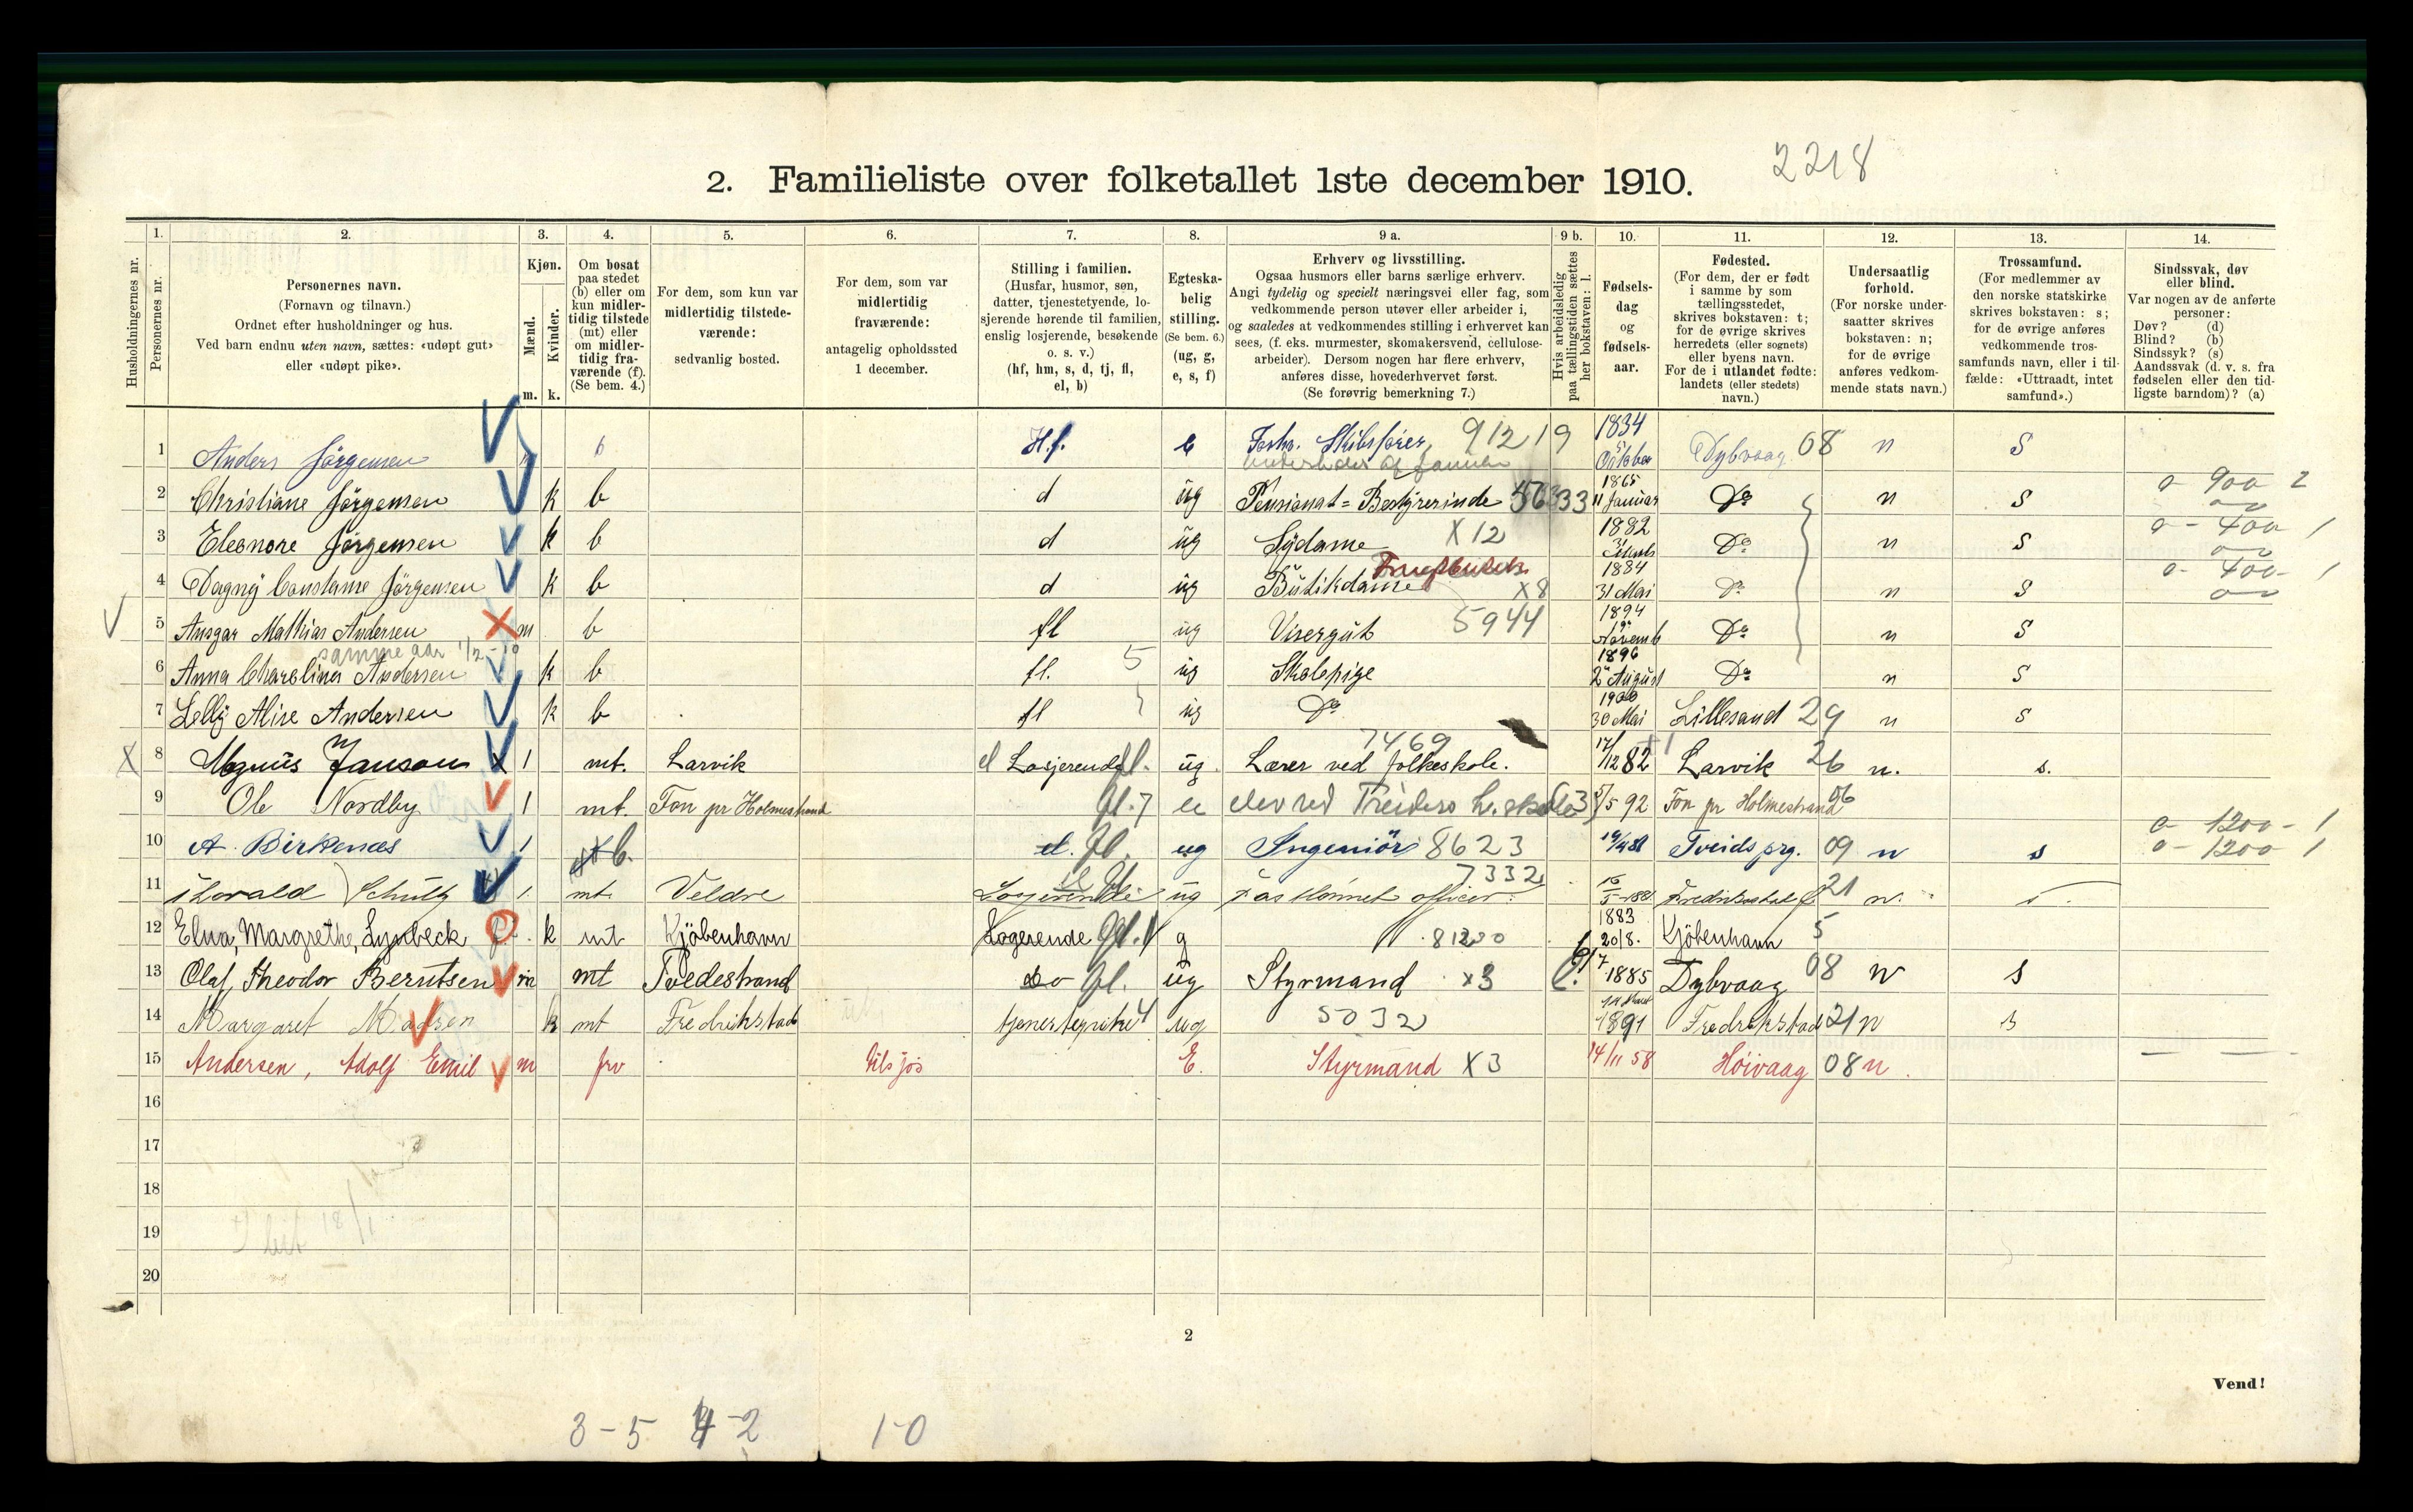 2218
2. Familieliste over folketallet 1ste december 1910.
Husholdningernes nr.
1. Personernes nr.
2. Personernes navn.
(Fornavn og tilnavn.)
Ordnet efter husholdninger og hus.
Ved barn endnu uten navn, sættes: «udøpt gut»
eller «udøpt pike».
3. Kjøn.
Mænd. m.
Kvinder. k.
4. Om bosat
paa stedet
(b) eller om
kun midler-
tidig tilstede
(mt) eller
om midler-
tidig fra-
værende (f).
(Se bem. 4.)
5. For dem, som kun var
midlertidig tilstede-
værende:
sedvanlig bosted.
6. For dem, som var
midlertidig
fraværende:
antagelig opholdssted
1 december.
7. Stilling i familien.
(Husfar, husmor, søn,
datter, tjenestetyende, lo-
sjerende hørende til familien,
enslig losjerende, besøkende
o. s. v.)
(hf, hm, s, d, tj, fl,
el, b)
8. Egteska-
belig
stilling.
(Se bem. 6.)
(ug, g,
e, s, f)
9 a. Erhverv og livsstilling.
Ogsaa husmors eller barns særlige erhverv.
Angi tydelig og specielt næringsvei eller fag, som
vedkommende person utøver eller arbeider i,
og saaledes at vedkommendes stilling i erhvervet kan
sees, (f. eks. murmester, skomakersvend, cellulose-
arbeider). Dersom nogen har flere erhverv,
anføres disse, hovederhvervet først.
(Se forøvrig bemerkning 7.)
9 b. Hvis arbeidsledig
paa tællingstiden sættes
her bokstaven: l.
10. Fødsels-
dag
og
fødsels-
aar.
11. Fødested.
(For dem, der er født
i samme by som
tællingsstedet,
skrives bokstaven: t;
for de øvrige skrives
herredets (eller sognets)
eller byens navn.
For de i utlandet fødte:
landets (eller stedets)
navn.)
12. Undersaatlig
forhold.
(For norske under-
saatter skrives
bokstaven: n;
for de øvrige
anføres vedkom-
mende stats navn.)
13. Trossamfund.
(For medlemmer av
den norske statskirke
skrives bokstaven: s;
for de øvrige anføres
vedkommende tros-
samfunds navn, eller i til-
fælde: «Uttraadt, intet
samfund».)
14. Sindssvak, døv
eller blind.
Var nogen av de anførte
personer:
Døv? (d)
Blind? (b)
Sindssyk? (s)
Aandssvak (d. v. s. fra
fødselen eller den tid-
ligste barndom)? (a)
1 Anders Jörgensen b H.f. e Forhv. Skibsfører 91219 1834 Oktober Dybvaag 08 n S
2 Christiane Jörgensen k b d ug Pensionat=Bestyrerinde 1865 11 Januar Do n S 0 900 2
3 Eleonore Jörgensen k b d ug Sydame X12 1882 Do n S 0 - 400 1
4 Dagny Constanse Jörgensen k b d ug Butikdame X8 1884 31 Mai Do n S 0 - 400 - 1
5 Ansgar Mathias Andersen m b fl ug Visergut 5944 1894 Novemb Do n S
samme aar 1/2 - 10
6 Anna Charolina Andersen k b fl. 5 ug Skolepige 1896 2 August Do n S
7 Lelly Alise Andersen k b fl ug Do 1900 30 Mai Lillesand 29 n S
X 8 Magnus Janson 1 mt. Larvik el Losjerende fl. ug. Lærer ved folkeskole. 7469 17/12 82 Larvik 26 n. s.
9 Ole Nordby 1 mt. Fon pr Holmestrand fl.7 elev ved Treiders h.skole 5/5 92 Fon pr Holmestrand
10 A. Birkenæs 1 b. el. fl. ug Ingeniör 8623 Tveids prg. 09 n s 0 - 1200 - 1
0 - 1200 1
11 Thorvald Schultz 1. mt. Veldre Losjerende ug 7332 Fredrikshald 21 n.
12 Elna, Margrethe, Lynbeck k mt Kjöbenhavn Logerende g 81200 1883 20/8. Kjöbenhavn 5
13 Olaf Theodor Berntsen m mt Tvedestrand do fl. ug Styrmand x3 l. 1885 Dybvaag 08 n s
14 Margaret Madsen k mt Fredrikstad tjenestepike 4 ug 5032 1891 Fredrikstad 21 n s
15 Andersen, Adolf Emil m frv tilsjös E. Styrmand X3 14/11 58 Höivaag 08 n.
16
17
18
19
20
2
Vend!
3-5 4-2 1-0